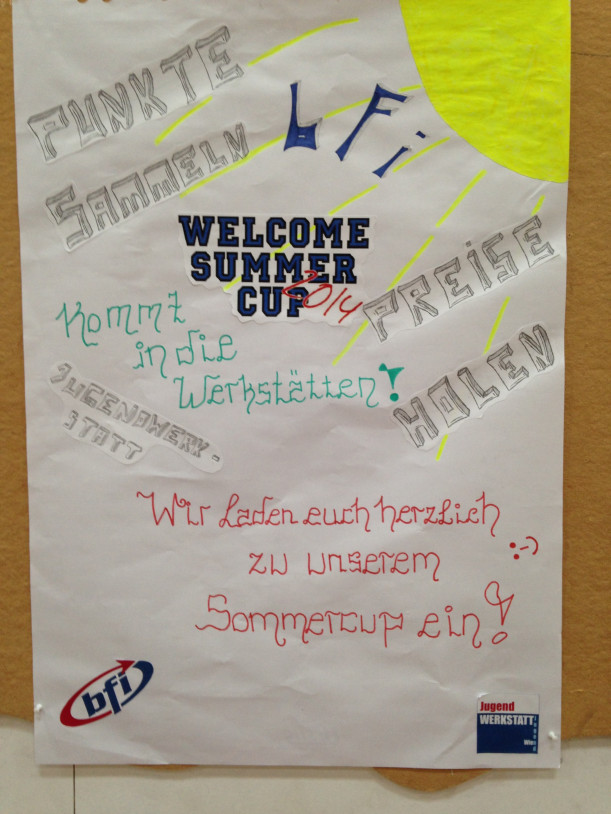 PUNKTE
SAMMELN
bFi
WELCOME
SUMMER
CUP 2014
PREISE
HOLEN
Kommt
in die
Werkstätten!
JUGENDWERK-
STATT
Wir laden euch herzlich
zu unserem :-)
Sommercup ein!
bfi
Jugend
WERKSTATT
Wien